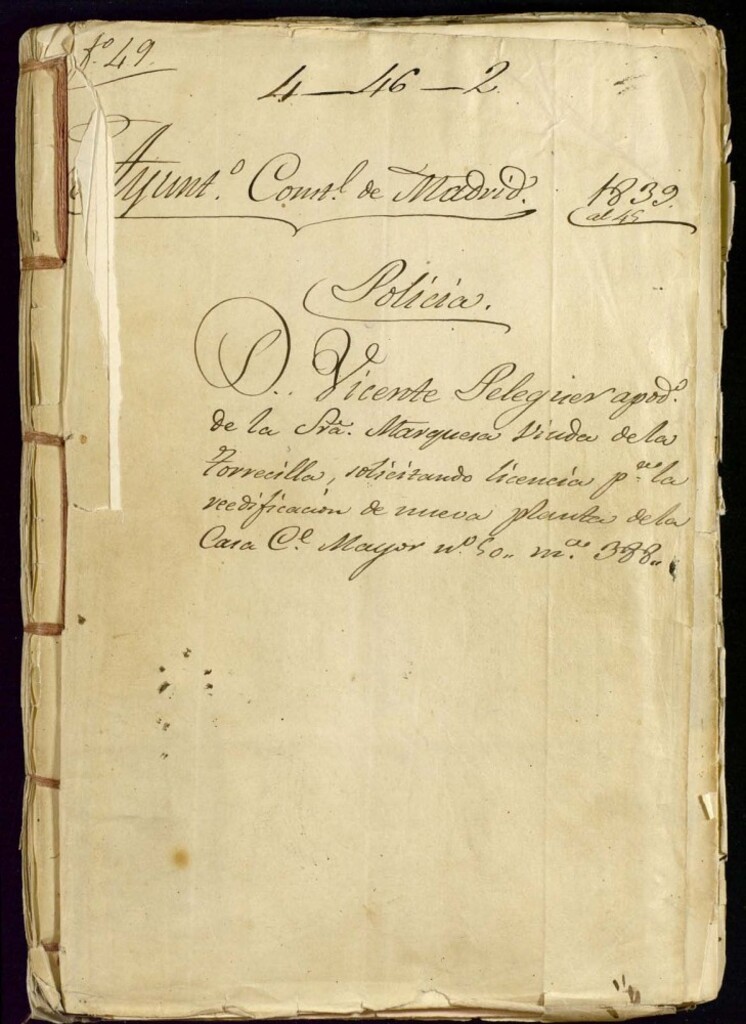 Nº 49
4—46—2
Ayuntº. Constl. de Madrid. 1839.
al 45
Policía.
D. Vicente Peleguer apodº.
de la Srã. Marquesa Viuda de la
Torrecilla, solicitando licencia pª la
reedificacion de nueva planta de la
Casa Cˡᵉ Mayor nº 50.. mª 388..